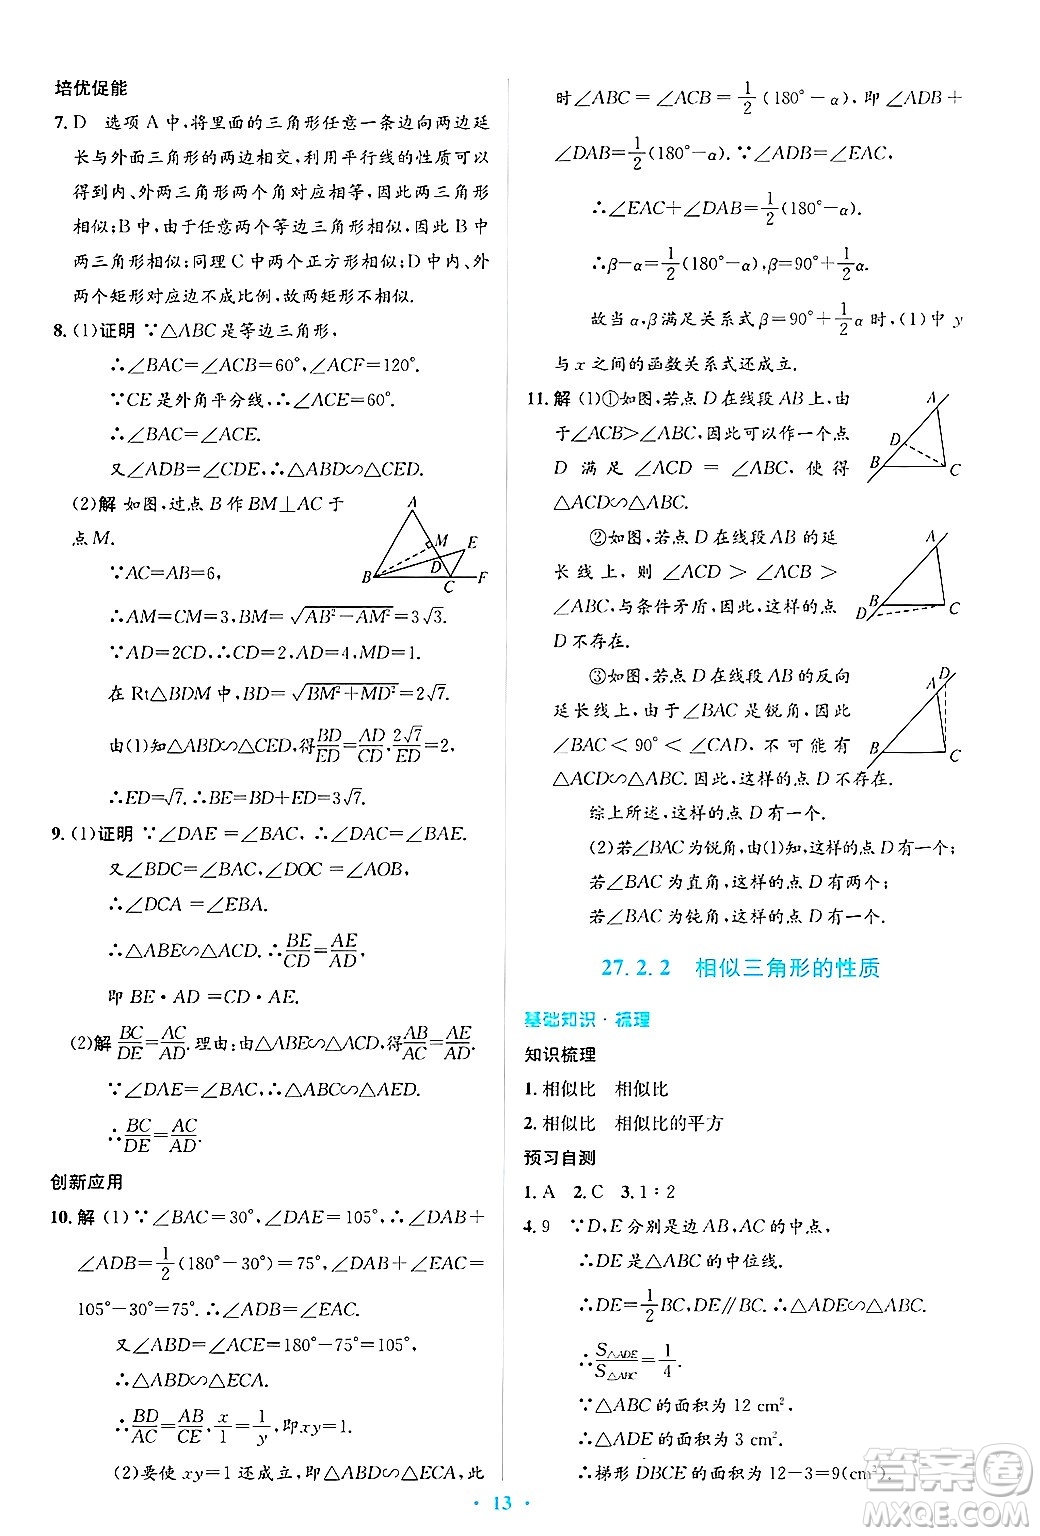 培优促能
7. D 选项 A 中,将里面的三角形任意一条边向两边延
长与外面三角形的两边相交,利用平行线的性质可以
得到内、外两三角形两个角对应相等,因此两三角形
相似;B 中,由于任意两个等边三角形相似,因此 B 中
两三角形相似;同理 C 中两个正方形相似;D 中内、外
两个矩形对应边不成比例,故两矩形不相似.
8. (1)证明 ∵△ABC 是等边三角形,
∴∠BAC=∠ACB=60°,∠ACF=120°.
∵CE 是外角平分线,∴∠ACE=60°.
∴∠BAC=∠ACE.
又∠ADB=∠CDE,∴△ABD∽△CED.
(2)解 如图,过点 B 作 BM⊥AC 于
点 M.
A
M
E
D
B
C
F
∵AC=AB=6,
∴AM=CM=3,BM=√(AB²-AM²)=3√3.
∵AD=2CD,∴CD=2,AD=4,MD=1.
在 Rt△BDM 中,BD=√(BM²+MD²)=2√7.
由(1)知△ABD∽△CED,得BD/ED=AD/CD,2√7/ED=2,
∴ED=√7.∴BE=BD+ED=3√7.
9. (1)证明 ∵∠DAE=∠BAC,∴∠DAC=∠BAE.
又∠BDC=∠BAC,∠DOC=∠AOB,
∴∠DCA=∠EBA.
∴△ABE∽△ACD.∴BE/CD=AE/AD.
即 BE·AD=CD·AE.
(2)解 BC/DE=AC/AD.理由:由△ABE∽△ACD,得AB/AC=AE/AD.
∵∠DAE=∠BAC,∴△ABC∽△AED.
∴BC/DE=AC/AD.
创新应用
10. 解 (1)∵∠BAC=30°,∠DAE=105°,∴∠DAB+
∠ADB=1/2(180°-30°)=75°,∠DAB+∠EAC=
105°-30°=75°.∴∠ADB=∠EAC.
又∠ABD=∠ACE=180°-75°=105°,
∴△ABD∽△ECA.
∴BD/AC=AB/CE,x/1=1/y,即xy=1.
(2)要使 xy=1 还成立,即△ABD∽△ECA,此
时∠ABC=∠ACB=1/2(180°-α),即∠ADB+
∠DAB=1/2(180°-α).∵∠ADB=∠EAC,
∴∠EAC+∠DAB=1/2(180°-α).
∴β-α=1/2(180°-α),β=90°+1/2α.
故当 α,β 满足关系式 β=90°+1/2α 时,(1)中 y
与 x 之间的函数关系式还成立.
11. 解 (1)①如图,若点 D 在线段 AB 上,由
于∠ACB>∠ABC,因此可以作一个点
D 满足∠ACD=∠ABC,使得
△ACD∽△ABC.
A
D
B
C
②如图,若点 D 在线段 AB 的延
长线上,则∠ACD>∠ACB>
∠ABC,与条件矛盾,因此,这样的点
D 不存在.
A
B
D
C
③如图,若点 D 在线段 AB 的反向
延长线上,由于∠BAC 是锐角,因此
∠BAC<90°<∠CAD,不可能有
△ACD∽△ABC.因此,这样的点 D 不存在.
A
D
B
C
综上所述,这样的点 D 有一个.
(2)若∠BAC 为锐角,由(1)知,这样的点 D 有一个;
若∠BAC 为直角,这样的点 D 有两个;
若∠BAC 为钝角,这样的点 D 有一个.
27.2.2 相似三角形的性质
基础知识·梳理
知识梳理
1. 相似比 相似比
2. 相似比 相似比的平方
预习自测
1. A 2. C 3. 1∶2
4. 9 ∵D,E 分别是边 AB,AC 的中点,
∴DE 是△ABC 的中位线.
∴DE=1/2BC,DE∥BC.∴△ADE∽△ABC.
∴S△ADE/S△ABC=1/4.
∵△ABC 的面积为 12 cm²,
∴△ADE 的面积为 3 cm².
∴梯形 DBCE 的面积为 12-3=9(cm²).
· 13 ·
答案圈
MXQE.COM